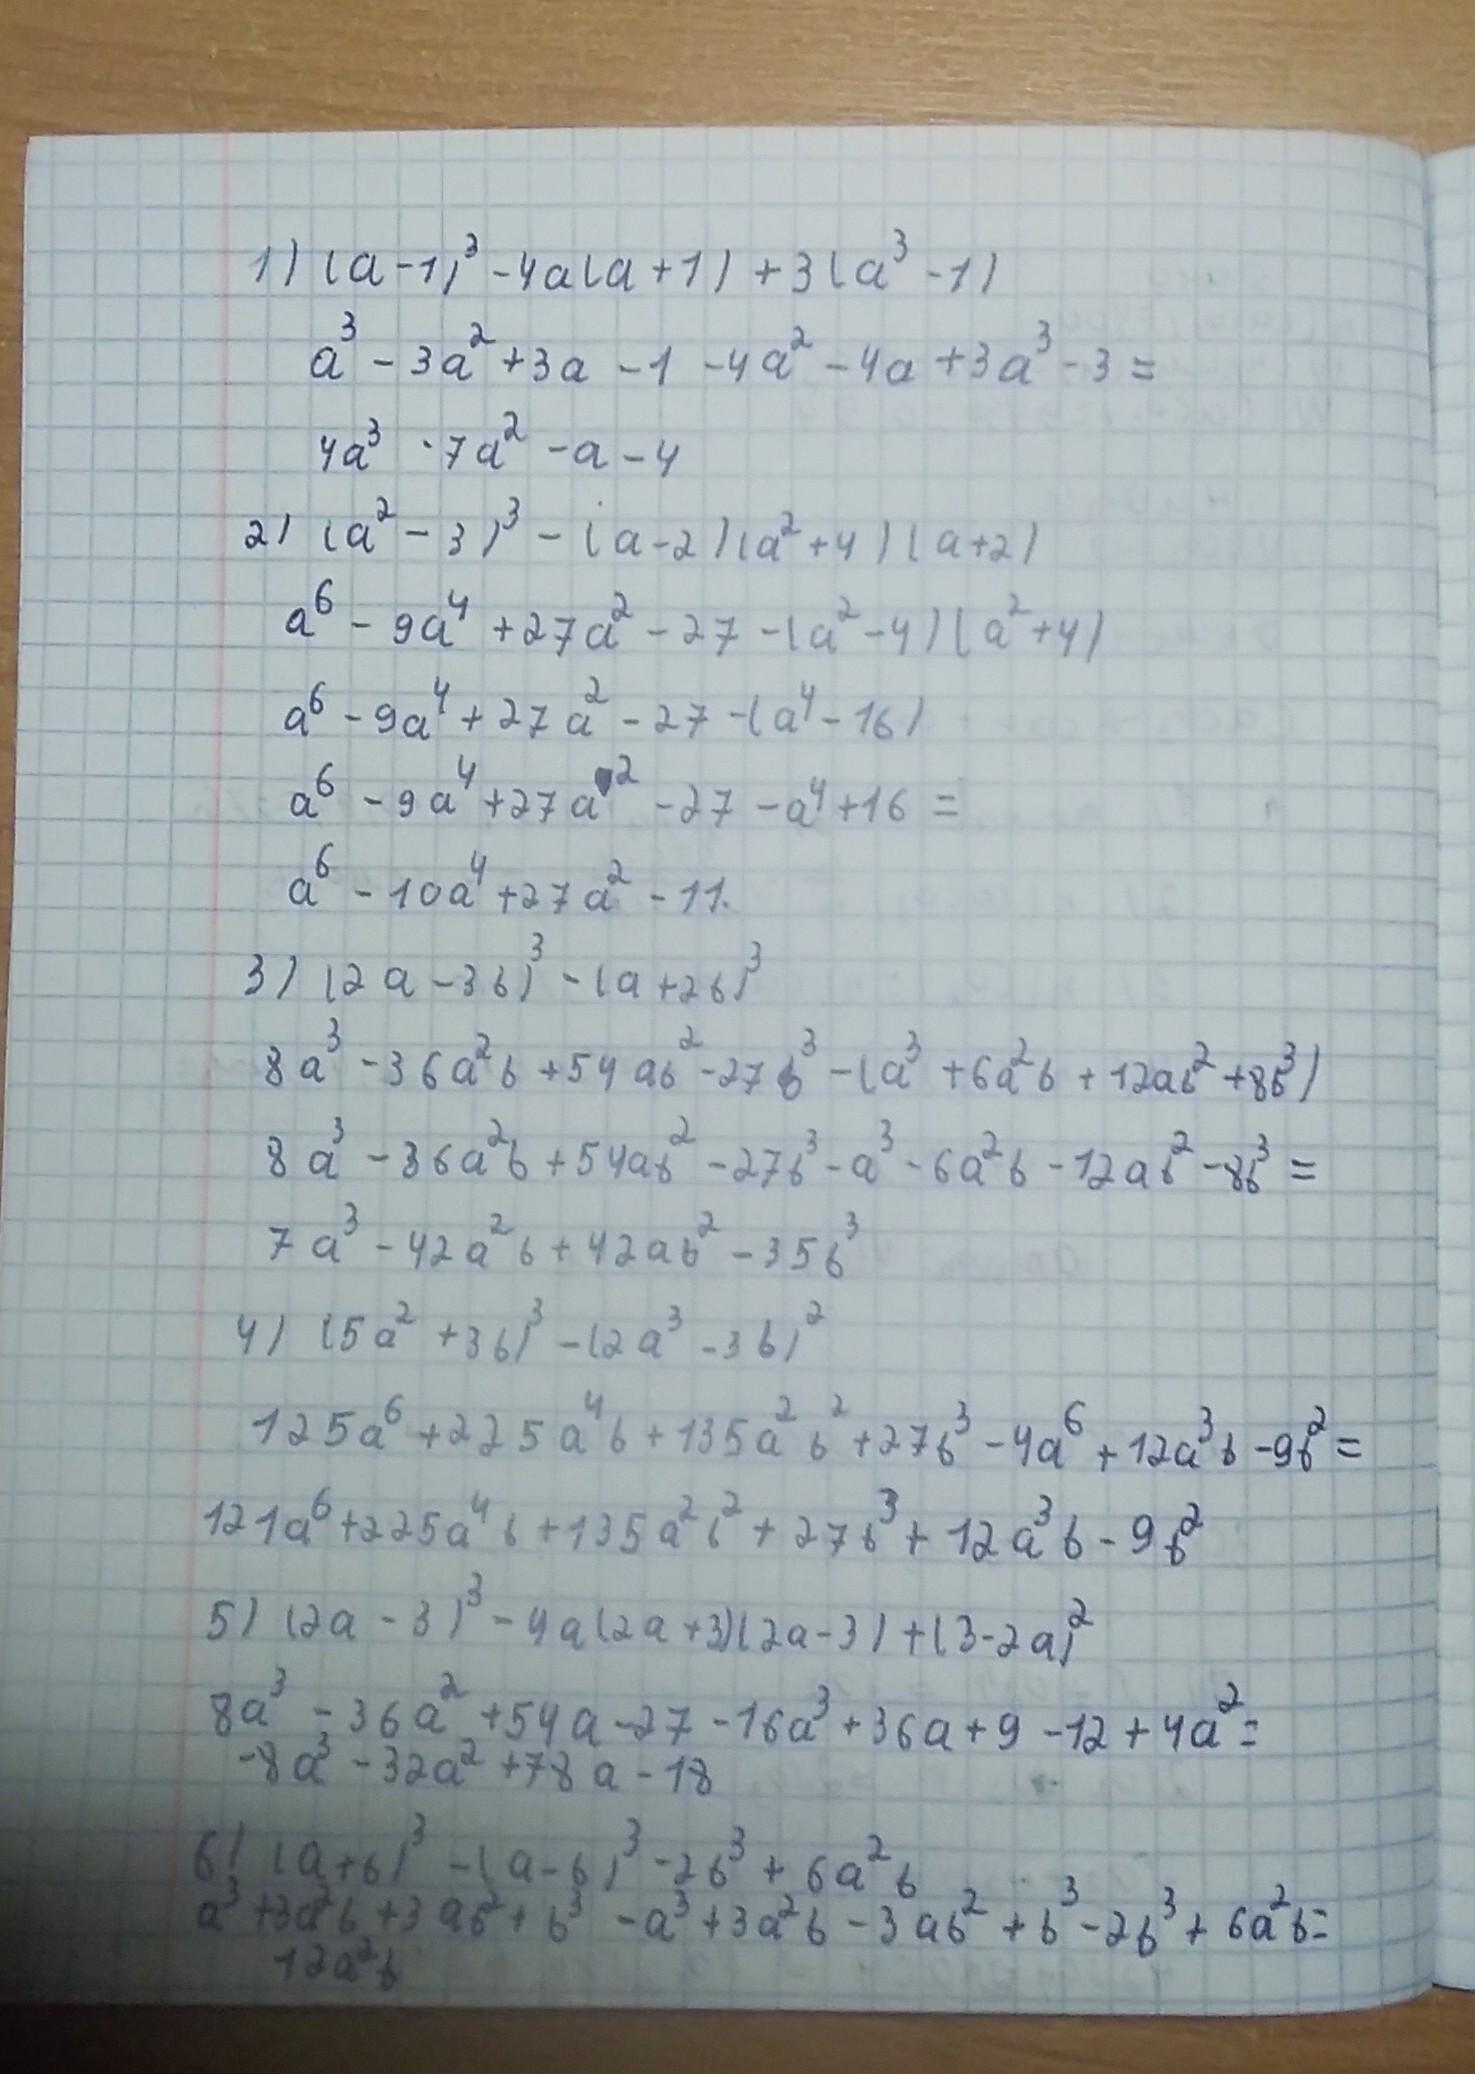 1) (a-1)³ -4a(a+1) +3(a³ -1)
a³ -3a² +3a -1 -4a² -4a +3a³ -3 =
4a³ -7a² -a -4
2) (a² -3)³ -(a-2)(a²+4)(a+2)
a⁶ -9a⁴ +27a² -27 -(a²-4)(a²+4)
a⁶ -9a⁴ +27a² -27 -(a⁴ -16)
a⁶ -9a⁴ +27a² -27 -a⁴ +16 =
a⁶ -10a⁴ +27a² -11.
3) (2a -3b)³ -(a+2b)³
8a³ -36a²b +54ab² -27b³ -(a³ +6a²b +12ab² +8b³)
8a³ -36a²b +54ab² -27b³ -a³ -6a²b -12ab² -8b³ =
7a³ -42a²b +42ab² -35b³
4) (5a² +3b)³ -(2a³ -3b)²
125a⁶ +225a⁴b +135a²b² +27b³ -4a⁶ +12a³b -9b² =
121a⁶ +225a⁴b +135a²b² +27b³ +12a³b -9b²
5) (2a -3)³ -4a(2a+3)(2a-3) +(3-2a)²
8a³ -36a² +54a -27 -16a³ +36a +9 -12 +4a² =
-8a³ -32a² +78a -18
6) (a+b)³ -(a-b)³ -2b³ +6a²b
a³ +3a²b +3ab² +b³ -a³ +3a²b -3ab² +b³ -2b³ +6a²b =
12a²b